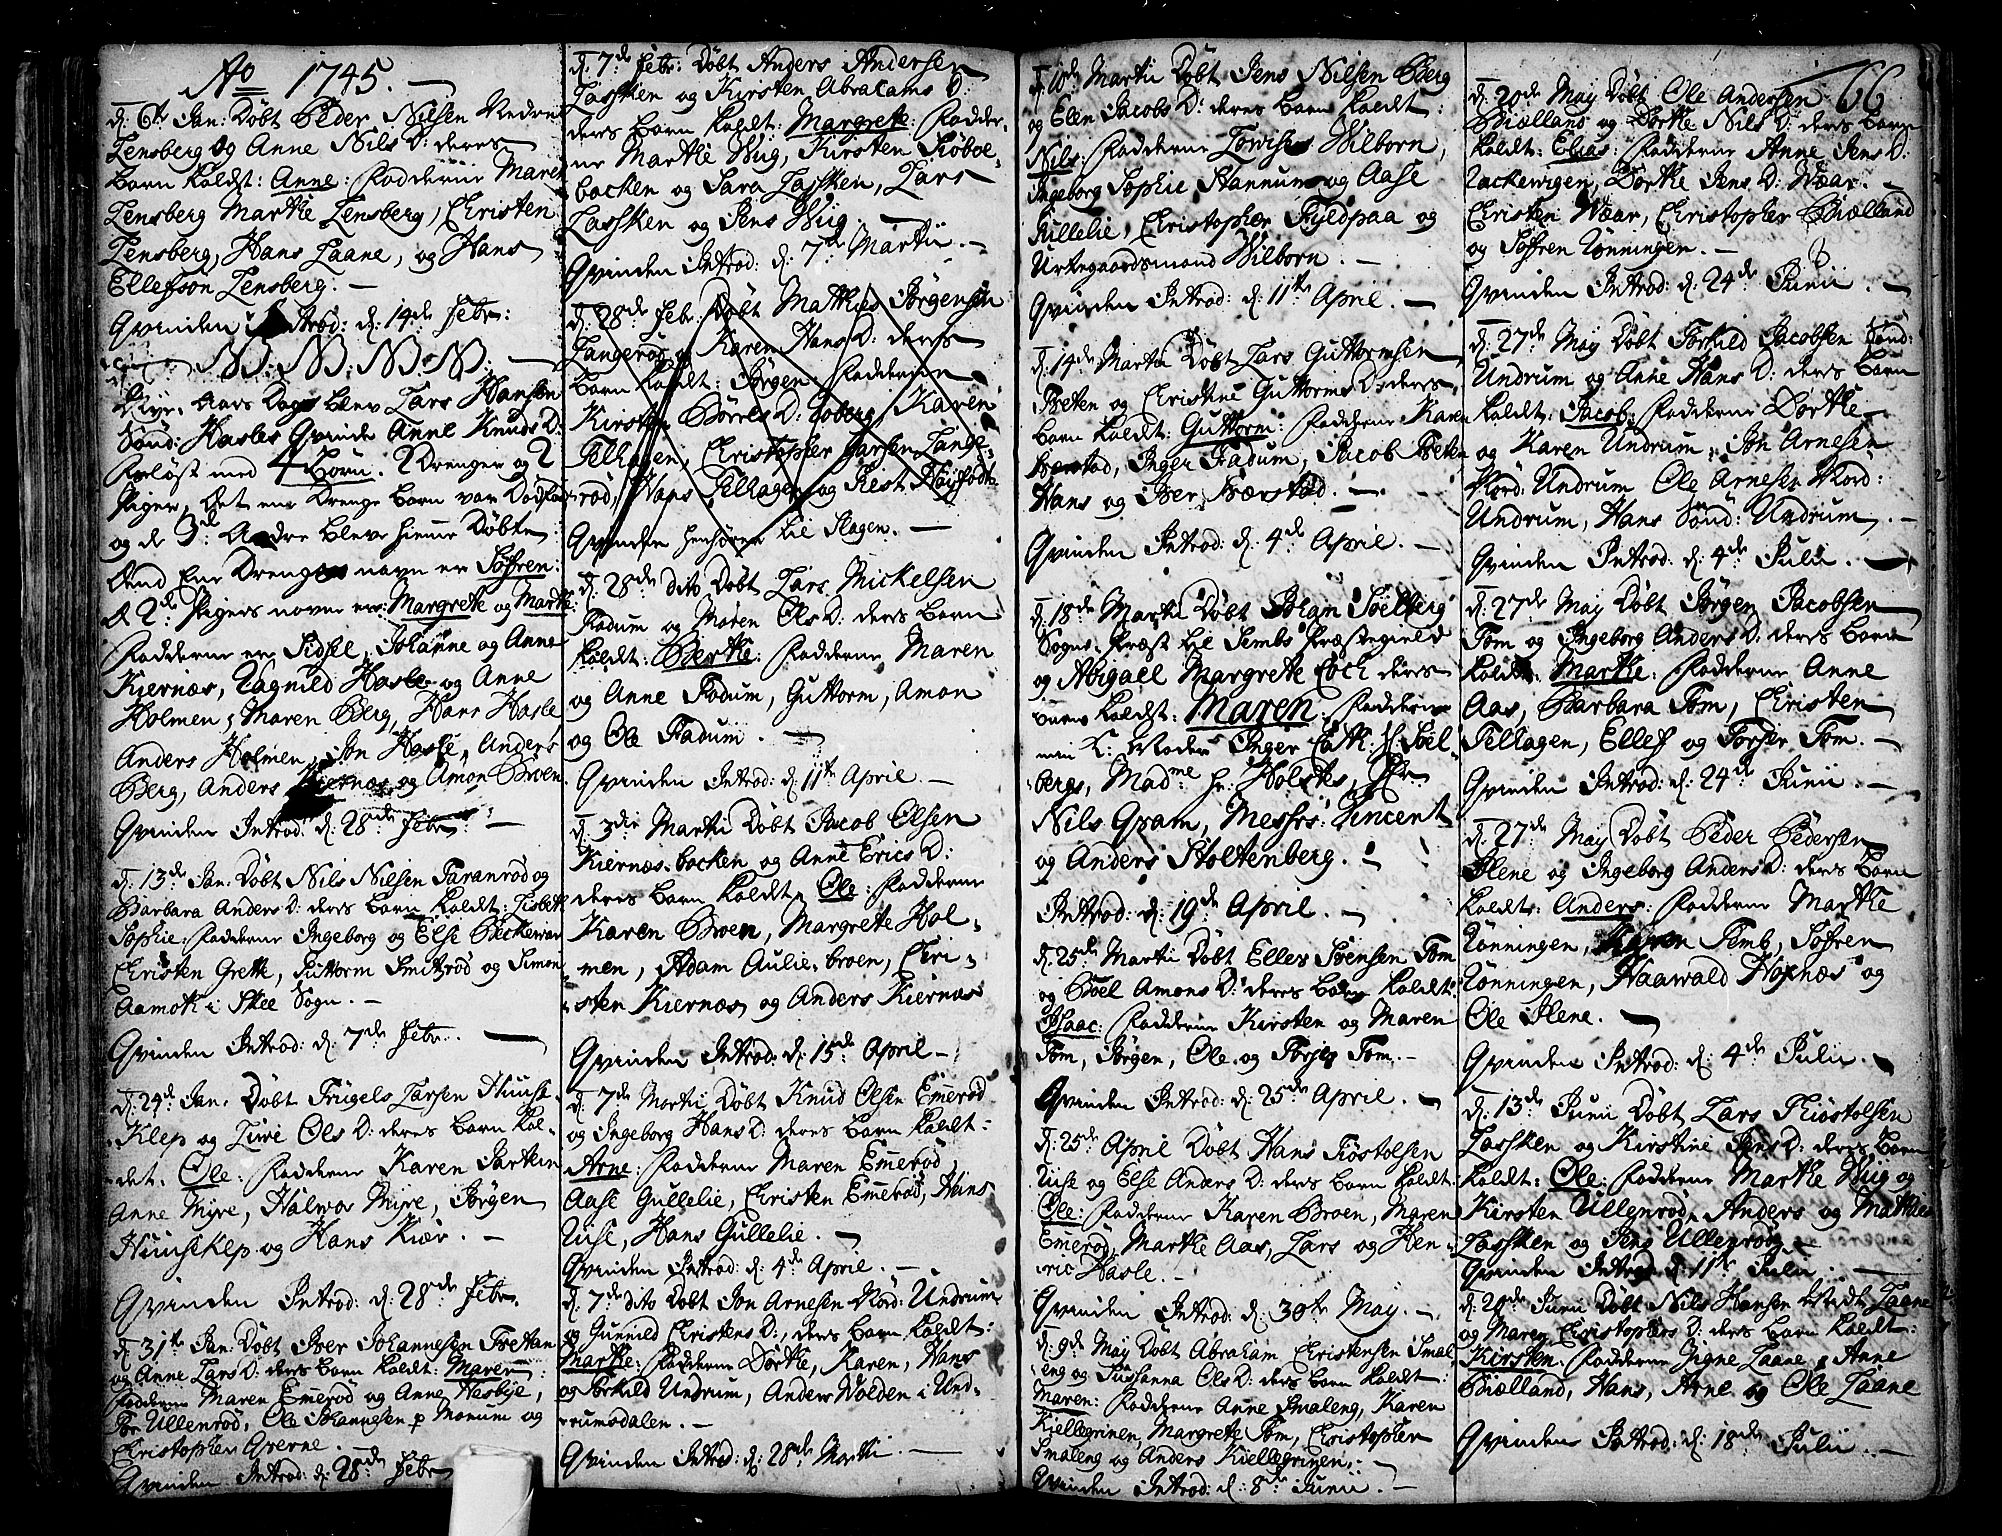 No 1745.
d. 6te Jan: Døbt Peder Nilsen Nedre
Lensberg og Anne Nils D: deres
barn kaldt: Anne: Fadderne Maren
Lensberg Marthe Lensberg, Christen
Lensberg, Hans Laane, og Hans
Ellefson Lensberg. —
Qvinden Introd: d. 14de Febr:
NB. NB. NB. NB.
Nyr-Aars Dag blev Lars Hansen
Sønd: Hasles Qvinde Anne Knuds D:
forløst med 4 Børn. 2 Drenger og 2
Piger, Det ene Drenge barn var Dødfød
og de 3de Andre bleve hiemme Døbte:
Dend Ene Drenges navn er Søfren:
d 2de Pigers naver er: Margrete og Marthe:
Fadderne er Sidsel, Johanne og Anne
Kiernæs, Ragnild Hasle og Anne
Holmen, Maren Berg, Hans Hasle
Anders Holmen, Jon Hasle, Anders
Berg, Anders Kiernæs og Amon Broen
Qvinden Introd: d. 28de Febr: —
d. 13de Jan: Døbt Nils Nilsen Taranrød og
Barbara Anders D: deres barn kaldt: Lisbeth
Sophie: Fadderne Ingeborg og Else Beckevar
Christen Grette, Guttorm Smitsrød og Simon
Aamot i Skee Sogn. —
Qvinden Introd: d. 7de Febr. —
d. 24de Jan. Døbt Trugels Larsen Huuse-
Klep og Live Ols D: deres barn kal-
det. Ole: Fadderne Karen
Anne Myre, Halvor Myre, Jørgen
Huuseklep og Hans Kiær. —
Qvinden Introd: d. 28de Febr.
d. 31te Jan: Døbt Iver Johannesen Tretan
og Anne Lars D: deres barn kaldt: Maren:
Fadderne Maren Emerød og Anne Nesbye,
Jon Ullenrød, Ole Johannesen p Monum og
Christopher Gverne.
Qvinden Introd: d. 28de Febr
d. 7de Febr: Døbt Anders Andersen
Lassken og Kirsten Abracams D:
deres barn kaldt: Margrete: Fadder-
ne Marthe Wiig, Kirsten Røboe-
backen og Sara Lassken, Lars
Lassken og Jens Wiig. —
Qvinden Introd: d. 7de Martii. —
d. 28de Febr: Døbt Mathies Jørgensen
Langerød og Karen Hans D: deres
barn kaldt: Jørgen: Fadderne
Kirsten Børres D: Roberg, Karen
Telhagen, Christopher Larsen Lange-
rød, Hans Telhagen og Kest Høyfødt
Qvinden henhører til Slagen. —
d. 28de dito Døbt Lars Mickelsen
Fadum og Maren Ols D: deres barn
kaldt: Berthe: Fadderne Maren
og Anne Fadum, Guttorm, Amon
og Ole Fadum. —
Qvinden Introd: d. 11te April. —
d. 3die Martii Døbt Jacob Olsen
Kiernæs-backen og Anne Erics D:
deres barn kaldt. Ole: Fadderne
Karen Broen, Margrete Hol-
men, Adam Aulie-broen, Chri-
sten Kiernæs og Anders Kiernæs
Qvinden Introd: d. 15de April —
d. 7de Martii Døbt Knud Olsen Emerød
og Ingeborg Hans D: deres barn kaldt:
Arne: Fadderne Maren Emerød
Aase Gullelie, Christen Emerød, Hans
Riise, Hans Gullelie. —
Qvinden Introd: d. 4de April. —
d. 7de dito Døbt Jon Arnesen Nord: Undrum
og Gunnild Christens D:, deres barn kaldt:
Marthe: Fadderne Dorthe, Karen, Hans
og Torkild Undrum, Anders Volden i Und-
rumsdalen. —
Qvinden Introd: d. 28de Martii. —
d. 10de Martii Døbt Jens Nilsen Berg
og Elen Jacobs D: deres barn kaldt:
Nils: Fadderne Lovise Wilborn,
Ingeborg Sophie Hannum og Aase
Gullelie, Christopher Fyldpaa og
Urtegaardsmand Wilborn. —
Qvinden Introd: d. 11te April. —
d. 14de Martii Døbt Lars Guttormsen
Treten og Christine Guttorms D: deres
barn kaldt: Guttorm: Fadderne Karen
Bærstad, Inger Fadum, Jacob Treten
Hans og Iver Bærstad. —
Qvinden Introd: d. 4de April. —
d. 18de Martii Døbt Johan Søelberg
Sogne-Præst til Sembs Præstegield
og Abigaël Margrete Coch deres
barn kaldt: Maren: Fadderne
min K: Moder Inger Cath: Søel-
bergs, Madme Hr: Holsts, Hr
Nils Gram, Messrs: Vincent
og Anders Stoltenberg. —
Introd: d. 19de April. —
d. 25de Martii Døbt Ellef Sørensen Tom
og Boel Amons D: deres barn kaldt:
Isaac: Fadderne Kirsten og Maren
Tom, Jørgen, Ole og Torjer Tom. —
Qvinden Introd: d. 25de April. —
d. 25de April Døbt Hans Tiøstolsen
Riise og Else Anders D: deres barn kaldt:
Ole: Fadderne Karen Broen, Maren
Emerød, Marthe Aas, Lars og Hen-
ric Hasle. —
Qvinden Introd: d. 30te May. —
d. 9de May Døbt Abraham Christensen Smal-
eng og Susanna Ols D: deres barn kaldt:
Maren: Fadderne Anne Smaleng, Karen
Kiellegrinen, Margrete Tom, Christopher
Smaleng og Anders Kiellegrinen. —
Qvinden Introd: d: 8de Junii. —
66
d. 20de May Døbt Ole Andersen
Biælland og Dorthe Nils D: deres barn
kaldt: Elias: Fadderne Anne Jens D:
Rackevigen, Dorthe Jens D: Wæar. —
Christen Wæar, Christopher Biælland
og Søfren Rønningen. —
Qvinden Introd: d: 24de Junii. —
d. 27de May Døbt Torkild Jacobsen Sønd:
Undrum og Anne Hans D: deres barn
kaldt: Jacob: Fadderne Dorthe
og Karen Undrum, Jon Arnesen
Nord: Undrum Ole Arnesen Nord:
Undrum, Hans Sønd: Undrum, —
Qvinden Introd: d. 4de Julii. —
d. 27de May Døbt Jørgen Jacobsen
Tom og Ingeborg Anders D: deres barn
kaldt: Marthe: Fadderne Anne
Aas, Barbara Tom, Christen
Telhagen, Ellef og Torjer Tom. —
Qvinden Introd: d: 24de Junii. —
d: 27de May Døbt Peder Pedersen
Ilene og Ingeborg Anders D: deres barn
kaldt: Anders: Fadderne Marthe
Rønningen, Karen Semb, Søfren
Rønningen, Haawald Hoxnæs og
Ole Ilene. —
Qvinden Introd: d: 4de Julii. —
d. 13de Junii Døbt Lars Tiøstolsen
Lassken og Kirstine Jens D: deres barn
kaldt: Ole: Fadderne Marthe Wiig og
Kirsten Ullenrød, Anders og Mathies
Lassken og Jens Ullenrød. —
Qvinden Introd: d. 11te Julii. —
d. 20de Junii Døbt Nils Hansen Laane
og Maren Christophers D: deres barn kaldt:
Kirsten: Fadderne Signe Laane, Anne
Biælland, Hans, Arne og Ole Laane
Qvinden Introd: d: 18de Julii. —